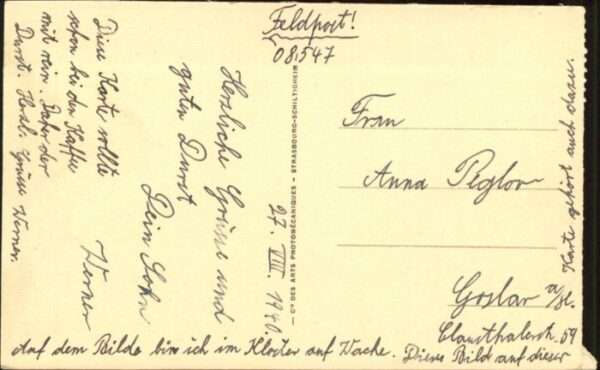 Feldpost!
08547
Diese Karte sollte
schon bei den Kaffee
mit rein. Dafür der
Durst. Herzl. Grüsse Werner.
Herzliche Grüsse und
guten Durst
Dein Sohn
Werner
27. VIII. 1940.
— Cie DES ARTS PHOTOMÉCANIQUES - STRASBOURG-SCHILTIGHEIM
Frau
Anna Peglow
Goslar a/H.
Clausthalerstr. 59
Auf dem Bilde bin ich im Kloster auf Wache. Dieses Bild auf dieser
Karte gehört auch dazu.